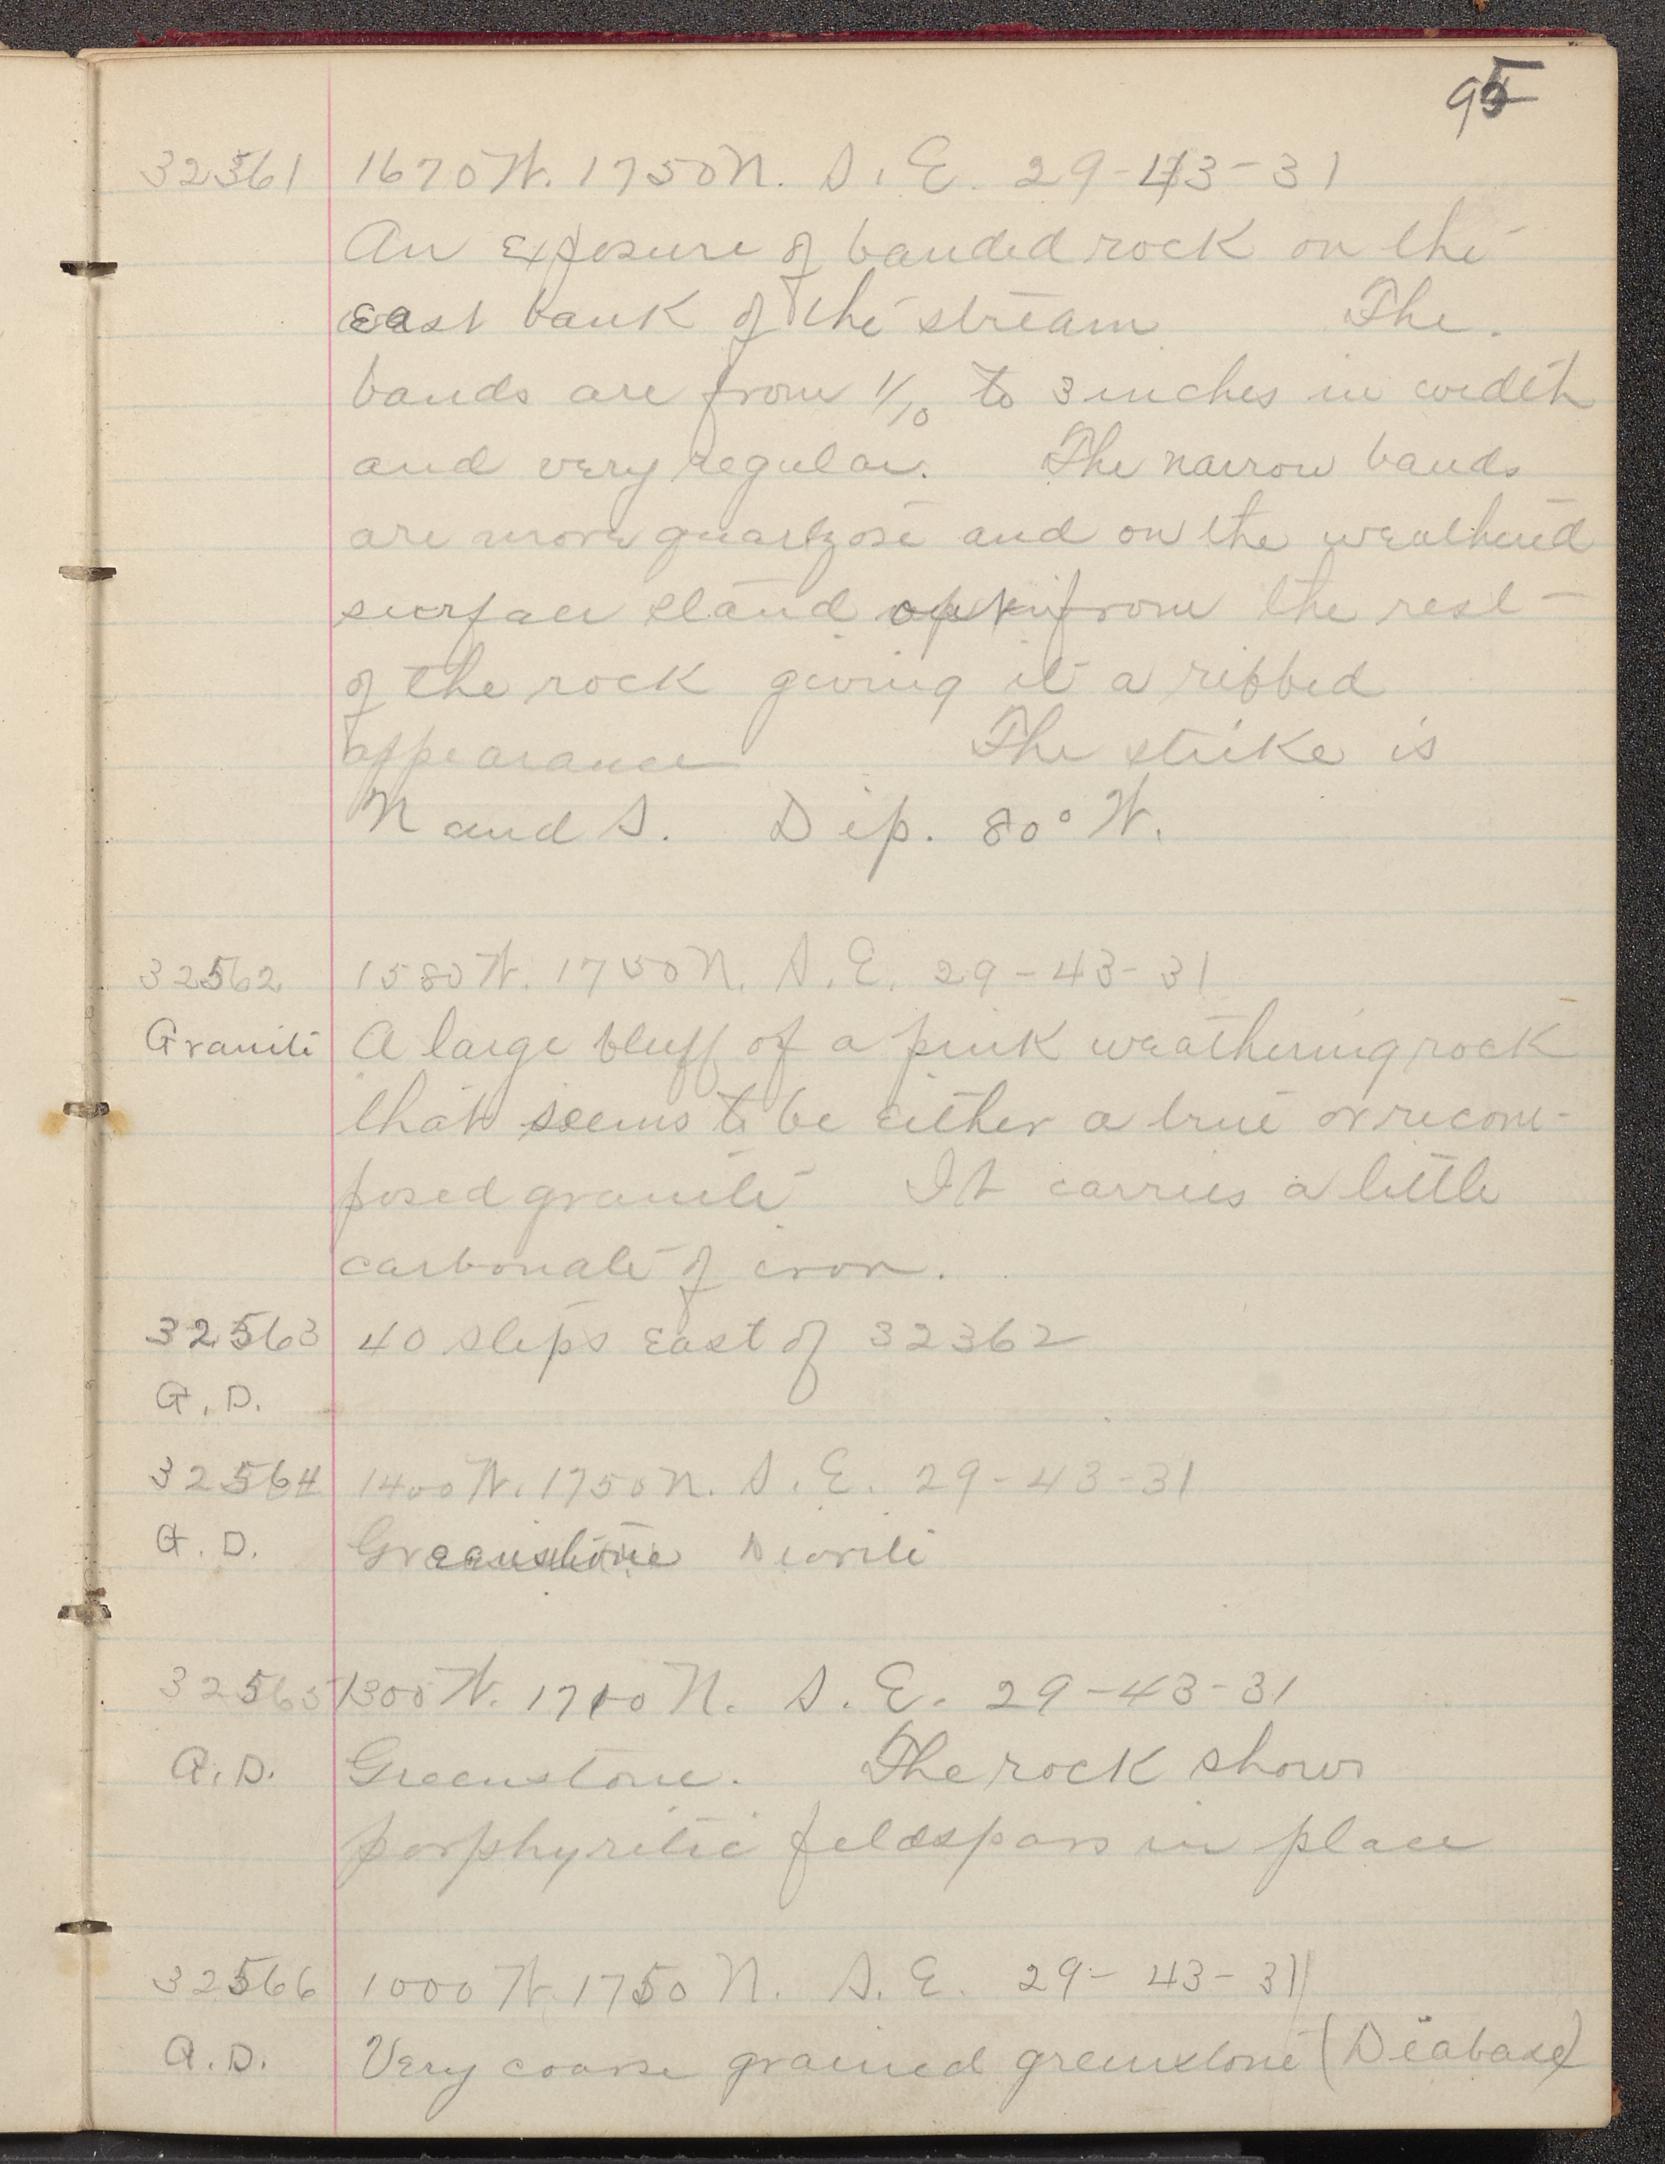 95
32561 1670 W. 1750 N. S. E. 29-43-31
An exposure of banded rock on the
east bank of the stream The
bands are from 1/10 to 3 inches in width
and very regular. The narrow bands
are more quartzose and on the weathered
surface stand from the rest
of the rock giving it a ribbed
appearance The strike is
N and S. Dip. 80° W.
32562 1580 W. 1750 N. S. E. 29-43-31
Granite A large bluff of a pink weathering rock
that seems to be either a true or recom-
posed granite It carries a little
carbonate of iron.
32563 40 steps East of 32362
G. D.
32564 1400 W. 1750 N. S. E. 29-43-31
G. D. Greenstone Diorite
32565 1300 W. 1700 N. S. E. 29-43-31
G. D. Greenstone. The rock shows
porphyritic feldspars in place
32566 1000 W. 1750 N. S. E. 29-43-31
G. D. Very coarse grained greenstone (Diabase)